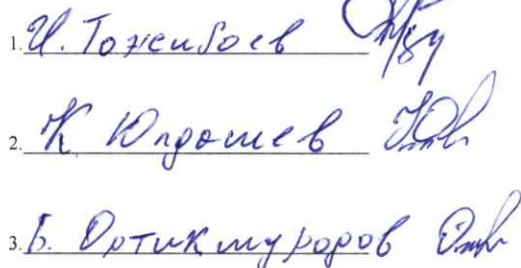 1. И. Тожибоев
2. К Юлдошев
3. Б. Ортикмуродов